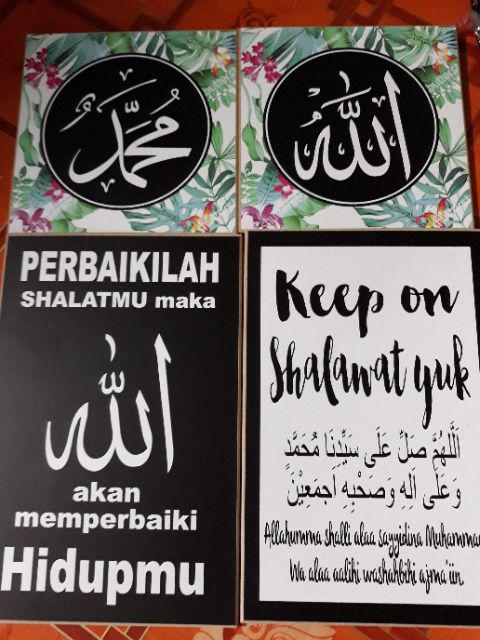 مُحَمَّد
اللّٰه
PERBAIKILAH
SHALATMU maka
اللّٰه
akan
memperbaiki
Hidupmu
Keep on
Shalawat yuk
اَللّٰهُمَّ صَلِّ عَلَى سَيِّدِنَا مُحَمَّدٍ
وَعَلَى اَلِهِ وَصَحْبِهِ اَجْمَعِيْنَ
Allahumma shalli alaa sayyidina Muhammad
Wa alaa aalihi washahbihi ajma'iin